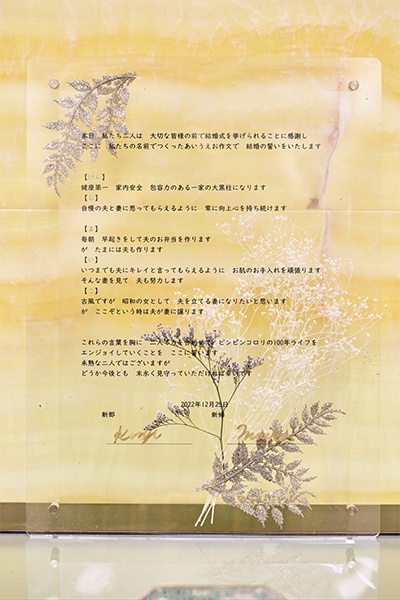 本日　私たち二人は　大切な皆様の前で結婚式を挙げられることに感謝し
ここに　私たちの名前でつくったあいうえお作文で　結婚の誓いをいたします
【けん】
健康第一　家内安全　包容力のある一家の大黒柱になります
【じ】
自慢の夫と妻に思ってもらえるように　常に向上心を持ち続けます
【ま】
毎朝　早起きをして夫のお弁当を作ります
が　たまには夫も作ります
【い】
いつまでも夫にキレイと言ってもらえるように　お肌のお手入れを頑張ります
そんな妻を見て　夫も努力します
【こ】
古風ですが　昭和の女として　夫を立てる妻になりたいと思います
が　ここぞという時は夫が妻に譲ります
これらの言葉を胸に　二人で力を合わせて　ピンピンコロリの100年ライフを
エンジョイしていくことを　ここに誓います
未熟な二人ではございますが
どうか今後とも　末永く見守っていただければ幸いです
2022年12月25日
新郎　新婦
Kenji